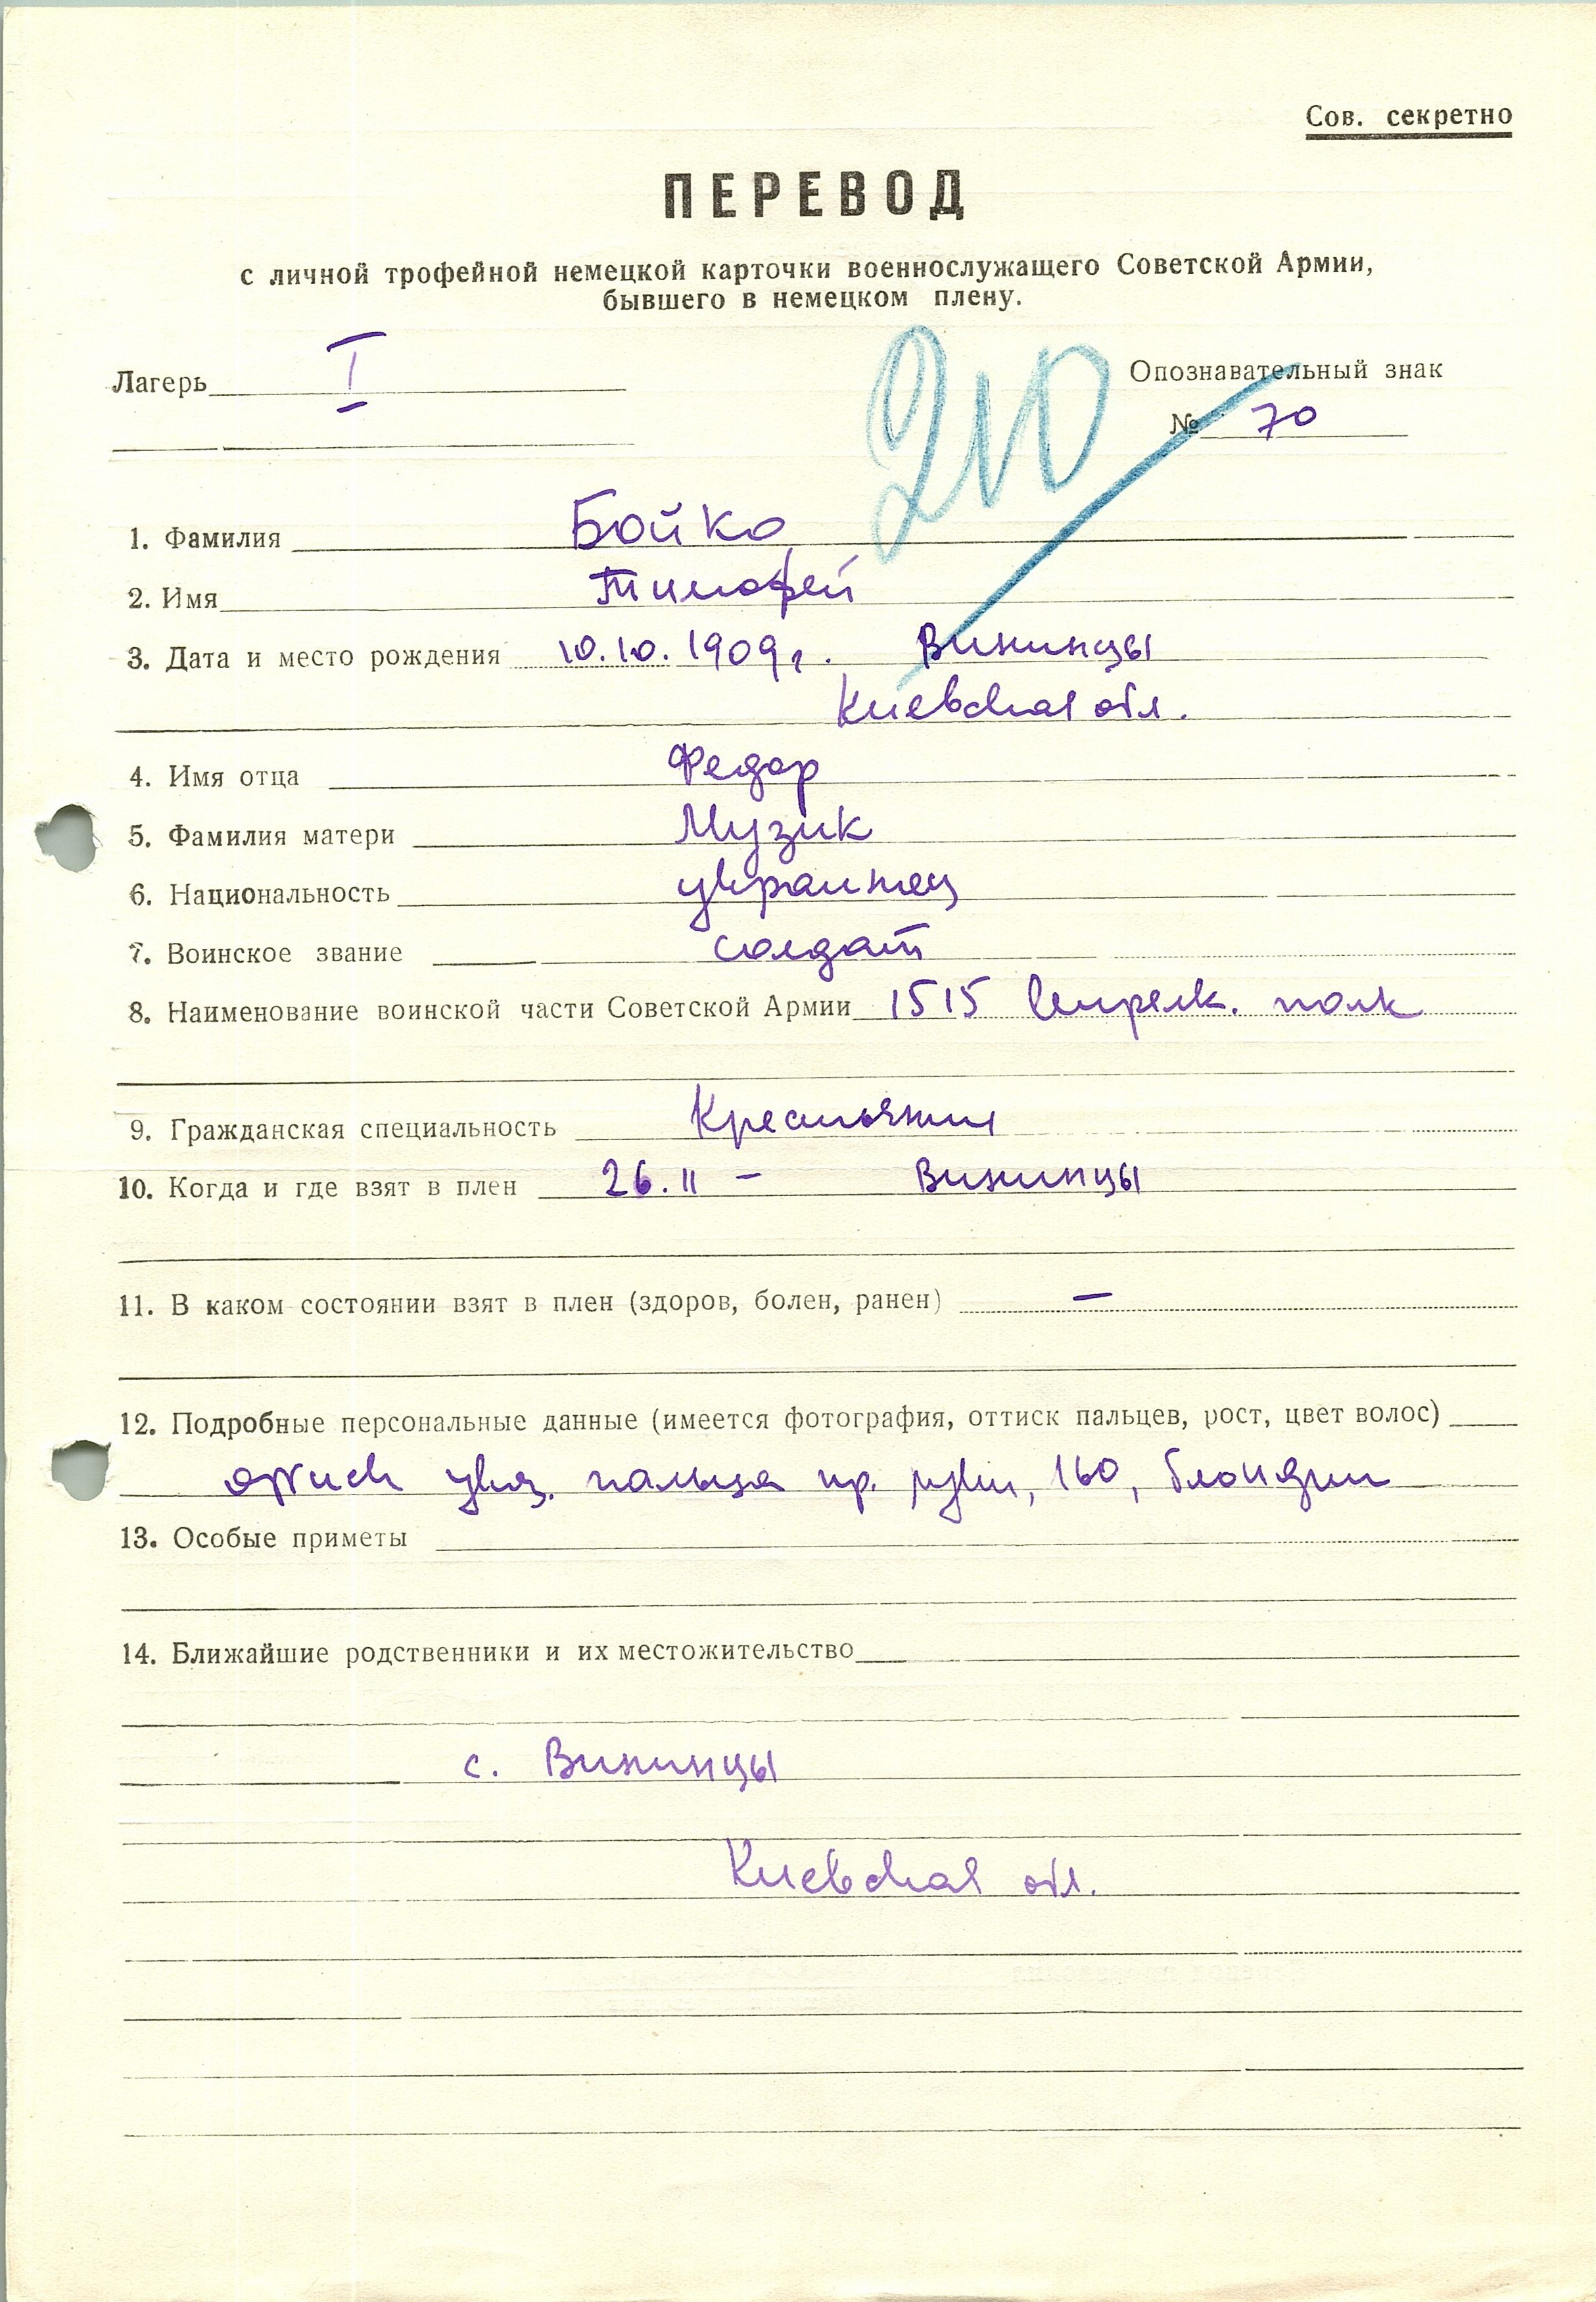 Сов. секретно
ПЕРЕВОД
с личной трофейной немецкой карточки военнослужащего Советской Армии,
бывшего в немецком плену.
Лагерь I
210
Опознавательный знак
№ 70
1. Фамилия Бойко
2. Имя Тимофей
3. Дата и место рождения 10.10.1909г. Винницы
Киевская обл.
4. Имя отца Федор
5. Фамилия матери Музик
6. Национальность украинец
7. Воинское звание солдат
8. Наименование воинской части Советской Армии 1515 стрелк. полк
9. Гражданская специальность Крестьянин
10. Когда и где взят в плен 26.11 – Винницы
11. В каком состоянии взят в плен (здоров, болен, ранен) –
12. Подробные персональные данные (имеется фотография, оттиск пальцев, рост, цвет волос)
оттиск указ. пальца пр. руки, 160, блондин
13. Особые приметы
14. Ближайшие родственники и их местожительство
с. Винницы
Киевская обл.